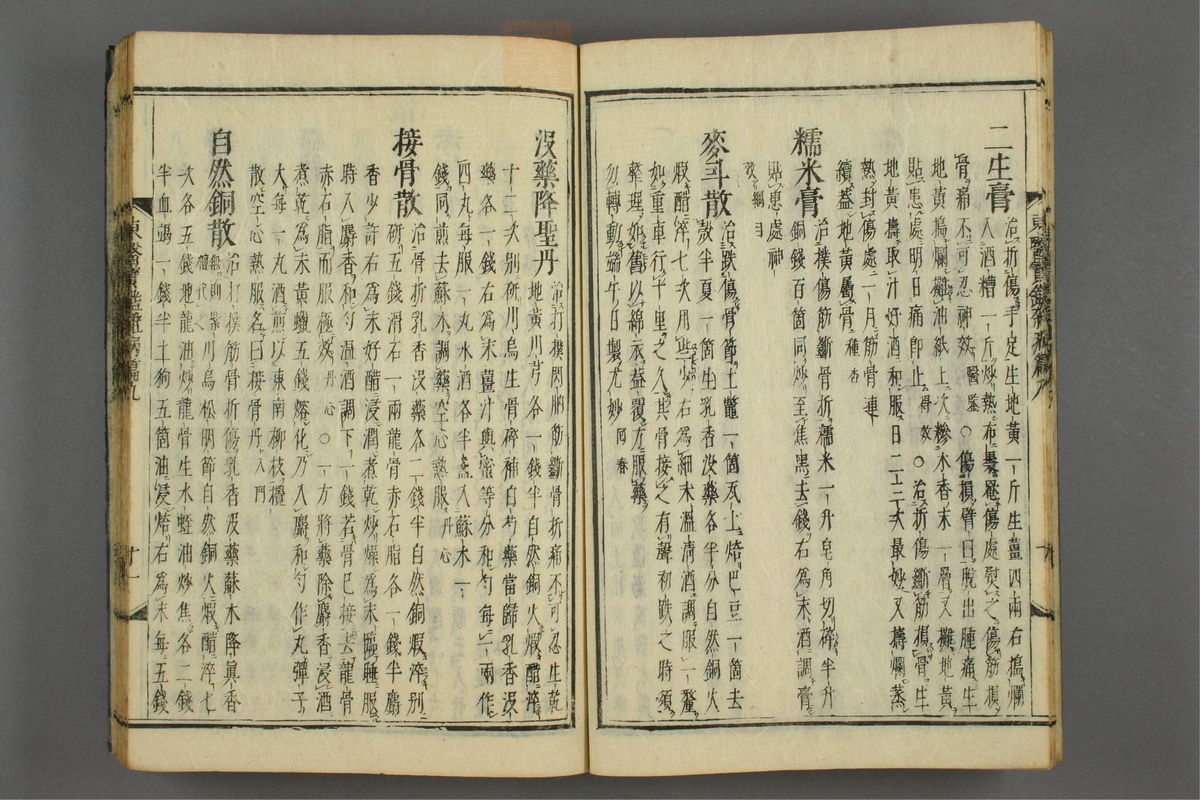 二生膏 治折傷手足生地黃一斤生薑四兩右搗爛
入酒糟一斤炒熟布裹罨傷處熨之傷筋損
骨痛不可忍神效 醫鑒 ○傷損臂臼脫出腫痛生
地黃搗爛攤油紙上次糝木香末一層又攤地黃
貼患處明日痛卽止 得效 ○治折傷斷筋損骨生
地黃擣取汁好酒和服日二三次最妙又擣爛蒸
熱封傷處一月筋骨連
續蓋地黃屬骨 種杏
糯米膏 治撲傷筋斷骨折糯米一升皂角切碎半升
銅錢百箇同炒至焦黑去錢右爲末酒調膏
貼患處神
效 綱目
麥斗散 治跌傷骨節土鱉一箇瓦上焙巴豆一箇去
殼半夏一箇生乳香沒藥各半分自然銅火
煆醋淬七次用些少右爲細末溫清酒調服一釐
如重車行十里之久其骨接之有聲初跌之時須
整理如舊以綿衣蓋覆方服藥
勿轉動端午日製尤妙 回春
沒藥降聖丹 治打撲閃肭筋斷骨折痛不可忍生乾
地黃川芎各一錢半自然銅火煆醋淬
十二次別硏川烏生骨碎補白芍藥當歸乳香沒
藥各一錢右爲末薑汁與蜜等分和勻每一兩作
四丸每服一丸水酒各半盞入蘇木一
錢同煎去蘇木調藥空心熱服 丹心
接骨散 治骨折乳香沒藥各二錢半自然銅煆淬別
硏五錢滑石一兩龍骨赤石脂各一錢半麝
香少許右爲末好醋浸潤煮乾炒燥爲末臨睡服
時入麝香和勻溫酒調下一錢若骨已接去龍骨
赤石脂而服極效 丹心 ○一方將藥除麝香浸酒
煮乾爲末黃蠟五錢熔化乃入麝和勻作丸彈子
大每一丸酒煎以東南柳枝攪
散空心熱服名曰接骨丹 入門
自然銅散 治打撲筋骨折傷乳香沒藥蘇木降眞香
無則紫檀代之 川烏松明節自然銅火煆醋淬七
次各五錢地龍油炒龍骨生水蛭油炒焦各二錢
半血竭一錢半土狗五箇油浸焙右爲末每五錢